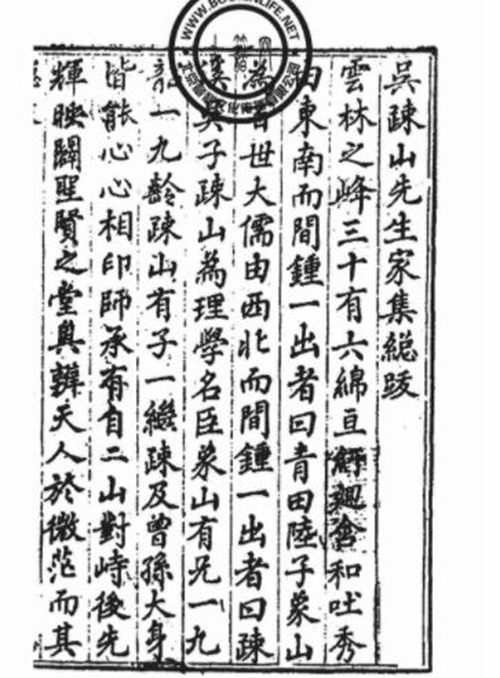 吳疎山先生家集緫跋
雲林之峰三十有六綿亘廻含和吐秀
由東南而間鍾一出者曰青田陸子象山
為百世大儒由西北而間鍾一出者曰疎
吳子疎山為理學名臣象山有兄一九
一九齡疎山有子一繼疎及曾孫大身
皆能心心相印師承有自二山對峙後先
輝映闢聖賢之堂奧辨天人於微茫而其
WWW.BOOKINLIFE.NET